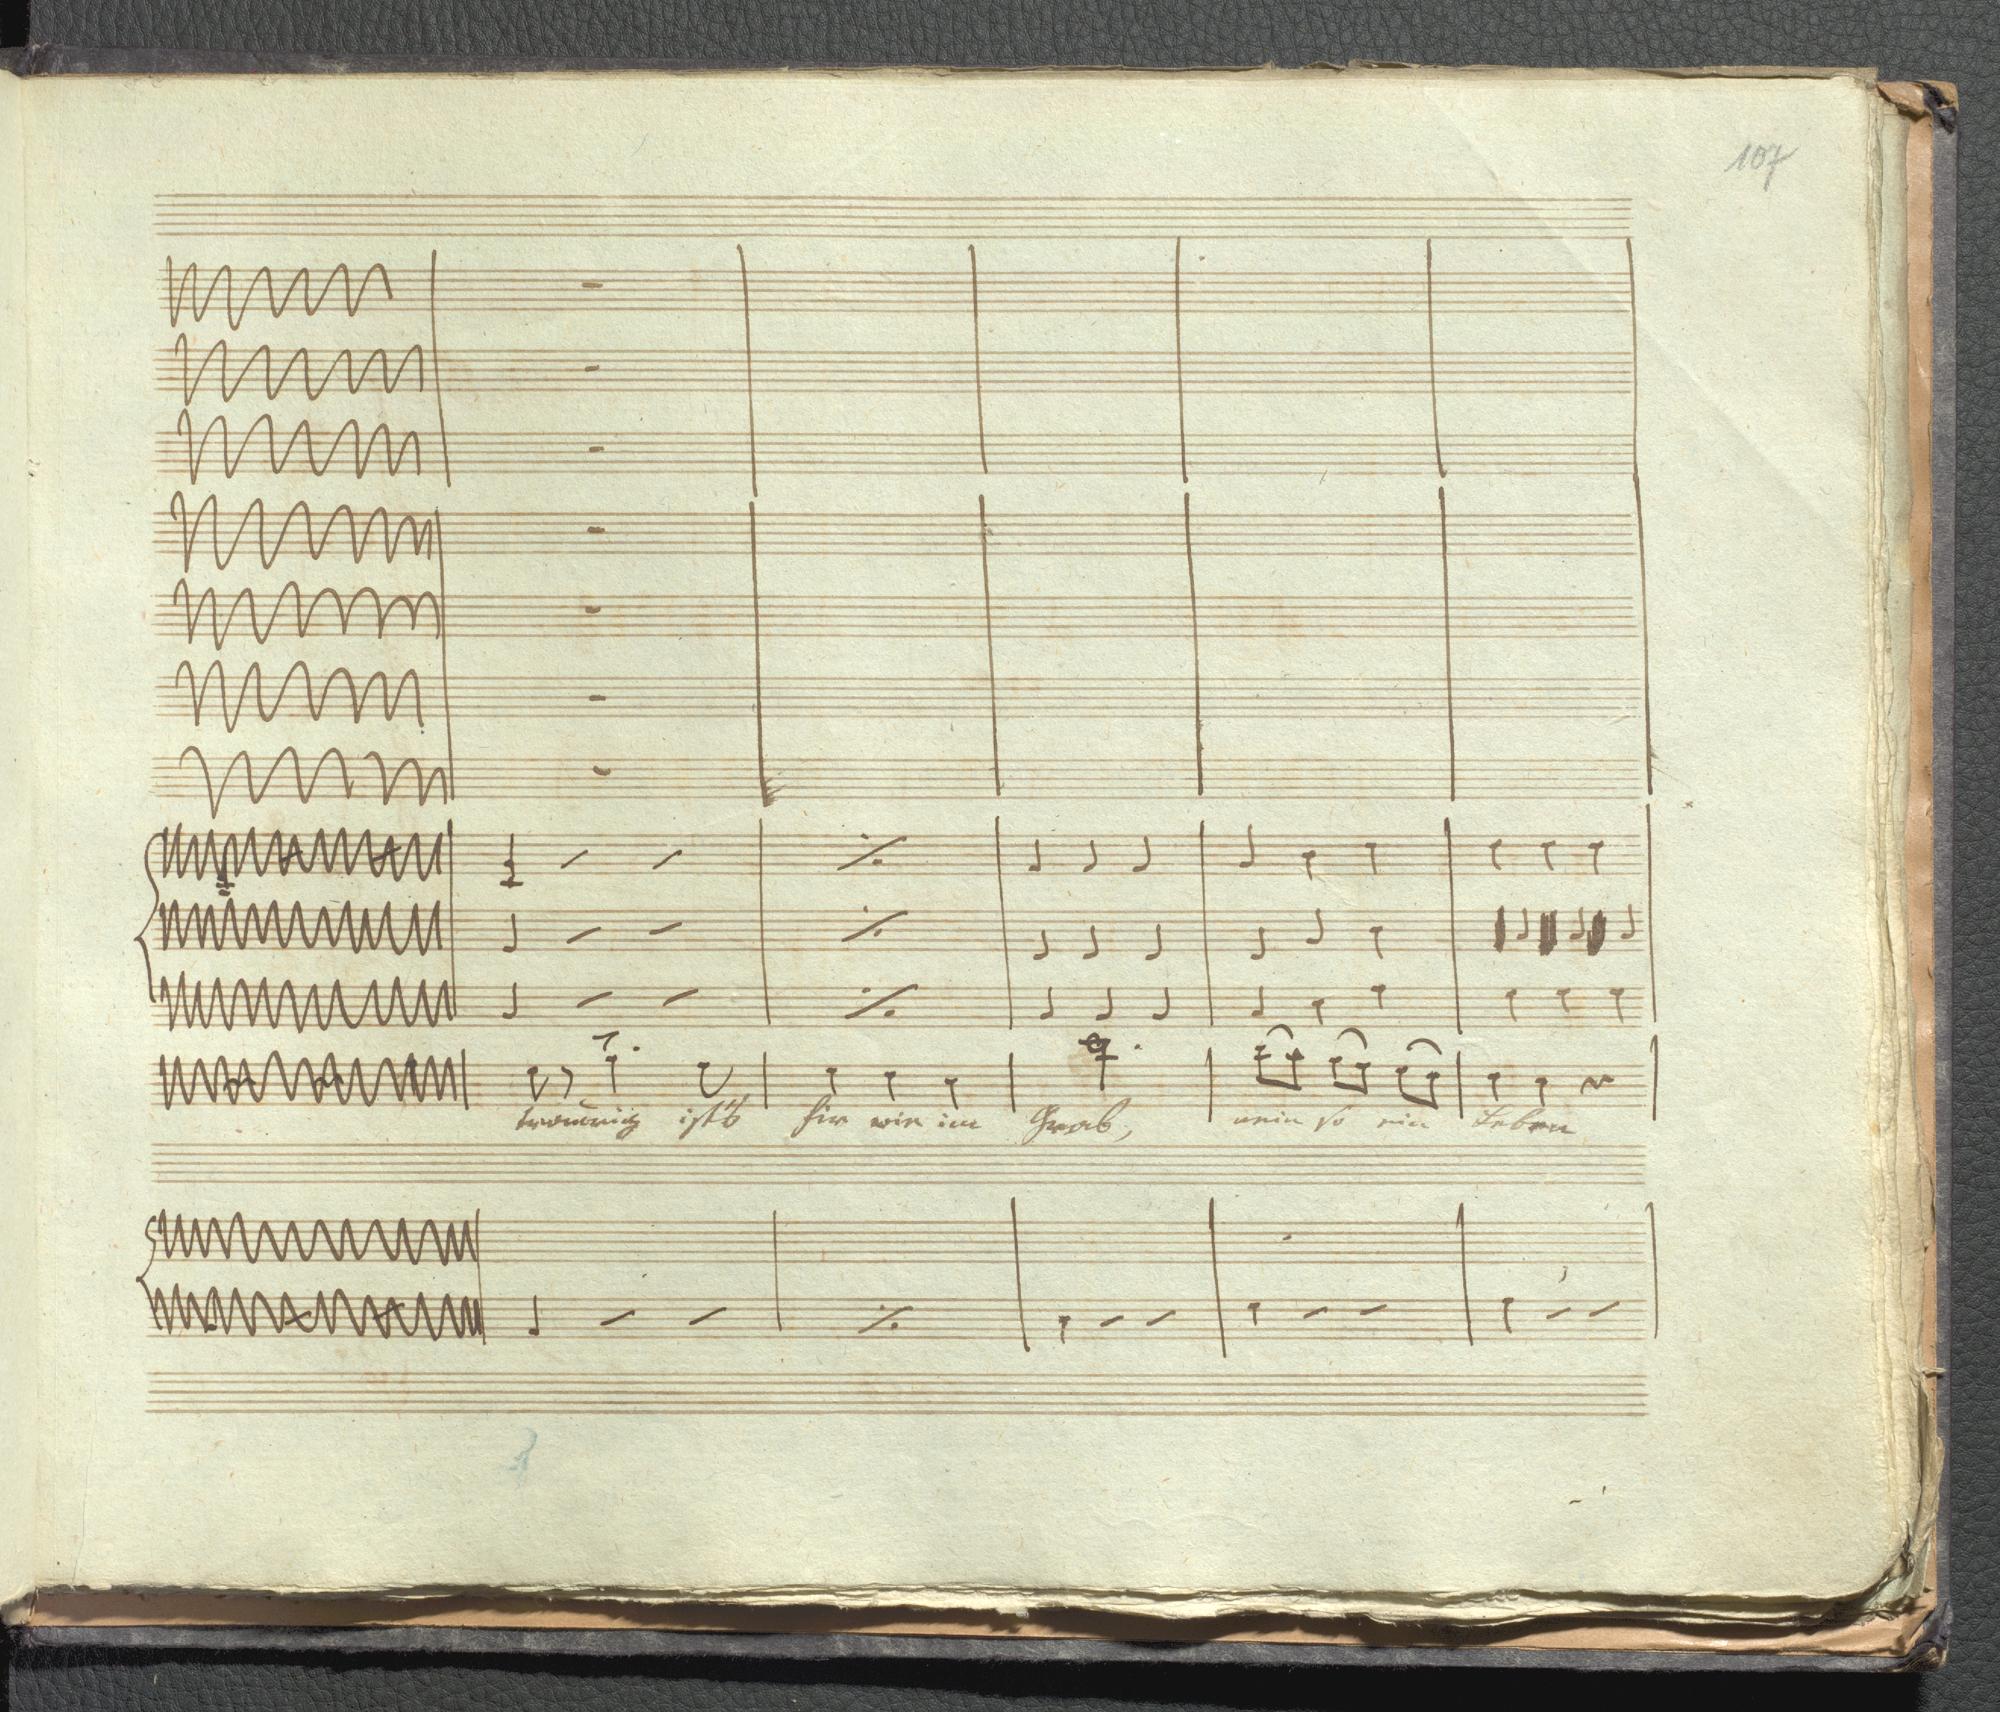 107
traurig ist's hir wie im Grab, nein so ein Leben